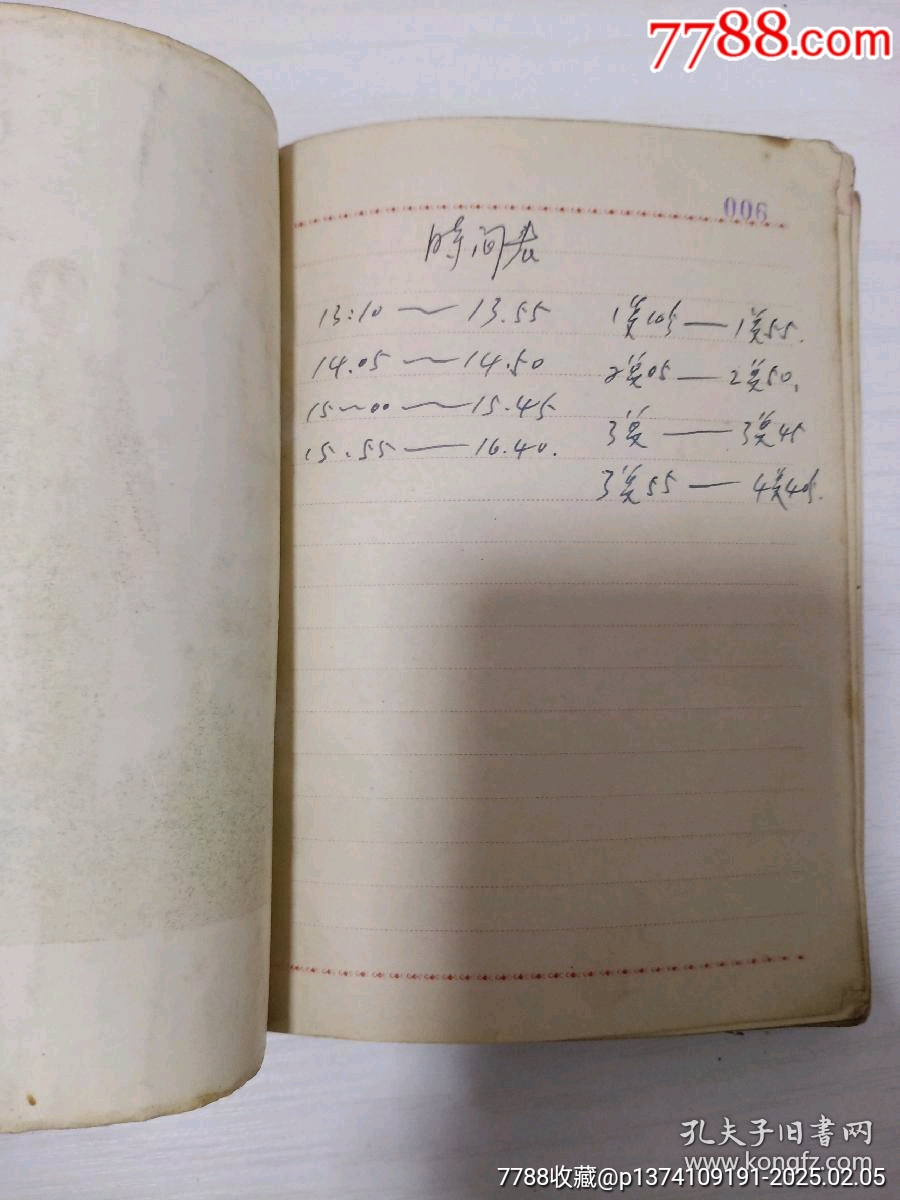 7788.com
006
時间表
13:10 — 13.55
14.05 — 14.50
15—00 — 15.45
15.55 — 16.40.
1点10分 — 1点55.
2点05 — 2点50.
3点 — 3点45
3点55 — 4点40分.
孔夫子旧书网
www.kongfz.com
7788收藏@p1374109191-2025.02.05